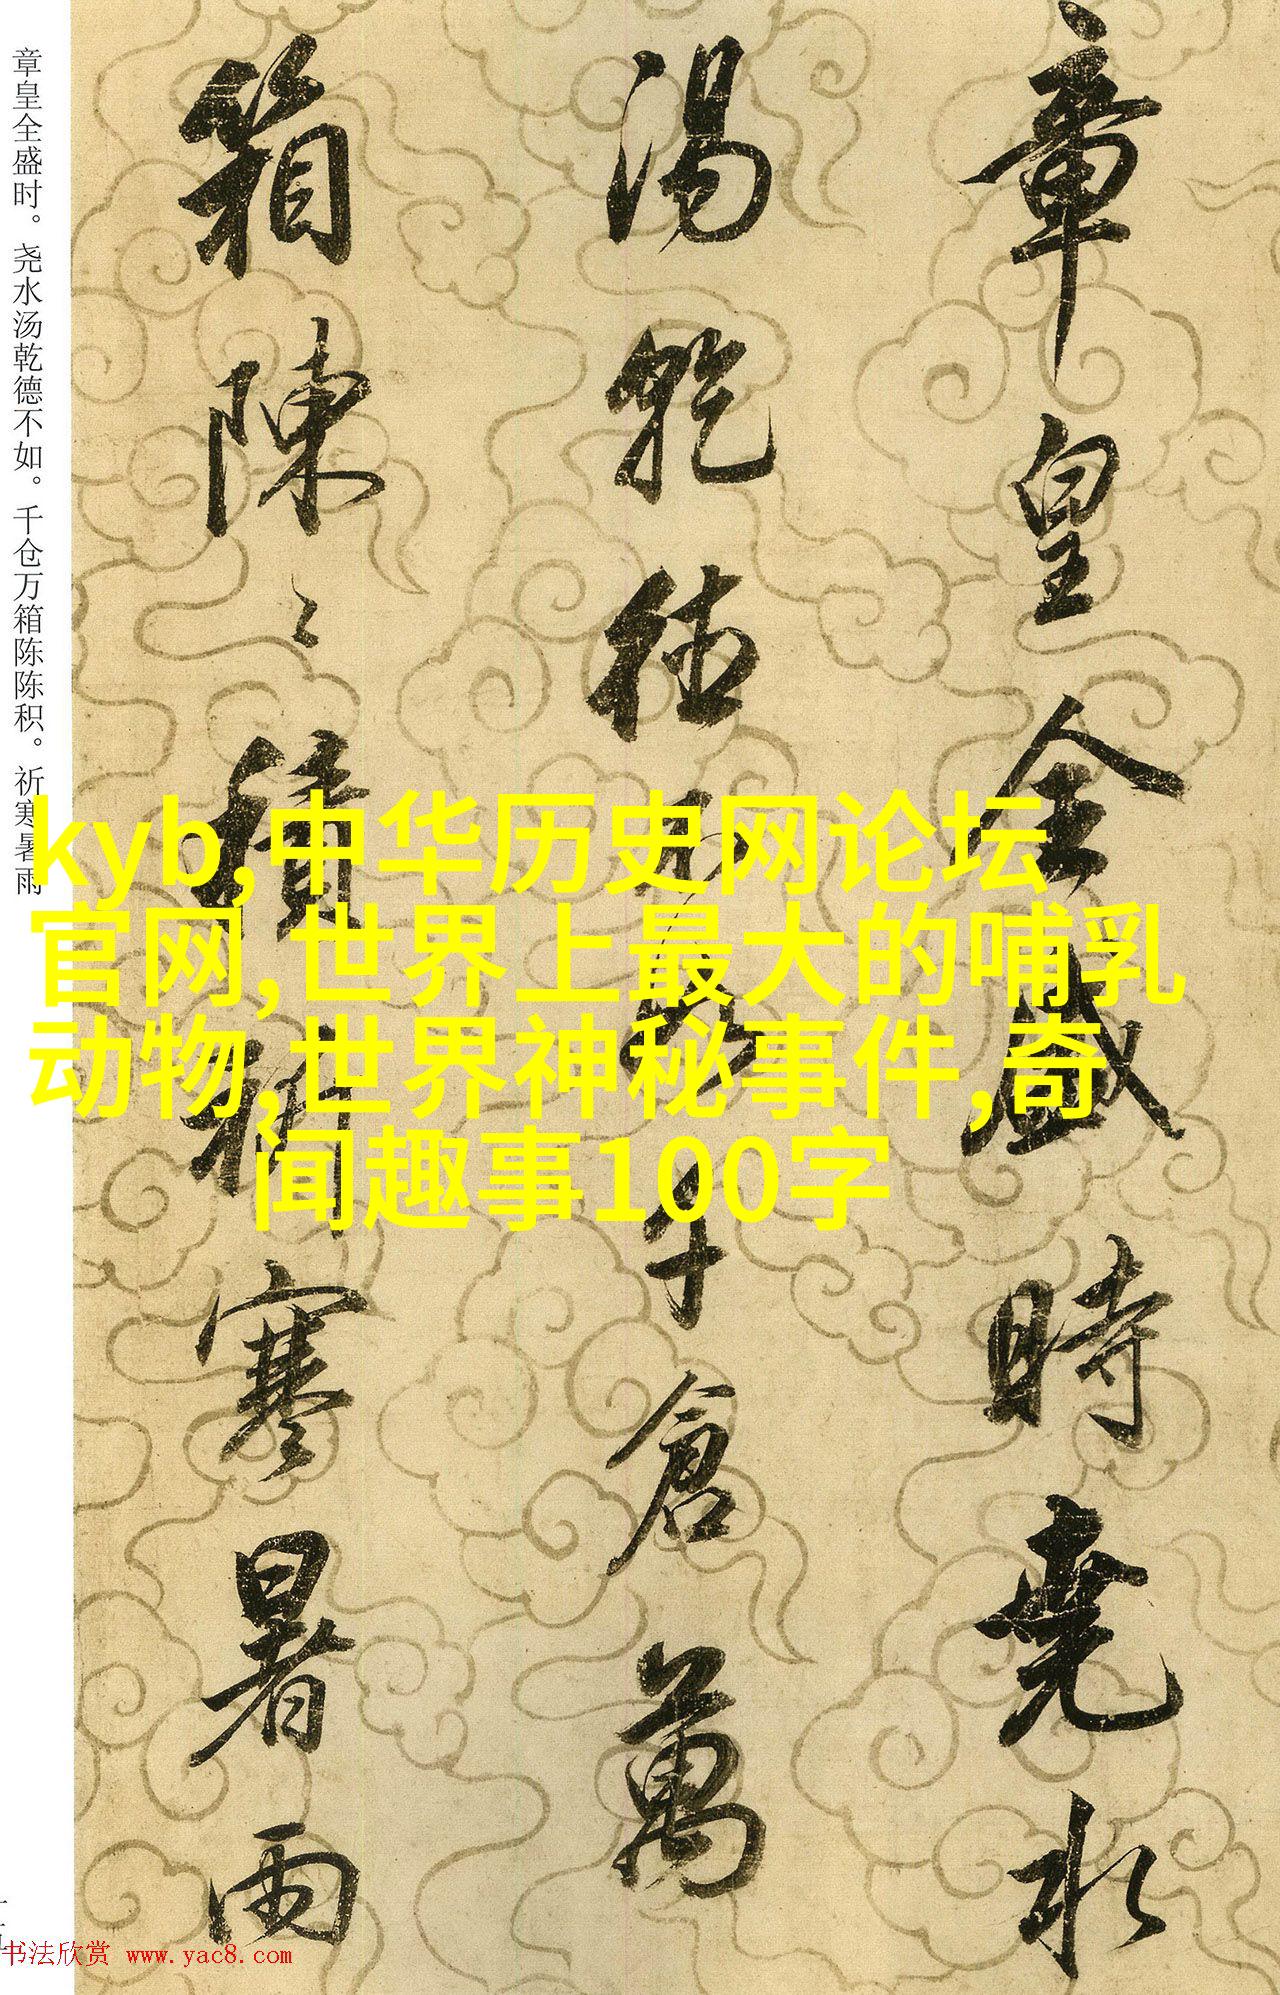 章皇全盛時堯水
湯乾德不如千倉萬
箱陳〻積祈寒暑雨
章皇全盛时。尧水汤乾德不如。千仓万箱陈陈积。祈寒暑雨
kyb,中华历史网论坛
官网,世界上最大的哺乳
动物,世界神秘事件,奇
闻趣事100字
书法欣赏 www.yac8.com